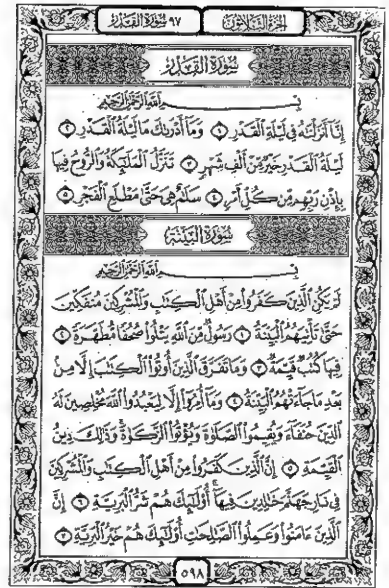 الجزء الثلاثون ٩٧ سورة القدر
سُورَةُ القَدْرِ
بِسْمِ ٱللَّهِ ٱلرَّحْمَٰنِ ٱلرَّحِيمِ
إِنَّآ أَنزَلْنَٰهُ فِى لَيْلَةِ ٱلْقَدْرِ ١ وَمَآ أَدْرَىٰكَ مَا لَيْلَةُ ٱلْقَدْرِ ٢
لَيْلَةُ ٱلْقَدْرِ خَيْرٌ مِّنْ أَلْفِ شَهْرٍ ٣ تَنَزَّلُ ٱلْمَلَٰٓئِكَةُ وَٱلرُّوحُ فِيهَا
بِإِذْنِ رَبِّهِم مِّن كُلِّ أَمْرٍ ٤ سَلَٰمٌ هِىَ حَتَّىٰ مَطْلَعِ ٱلْفَجْرِ ٥
سُورَةُ البَيِّنَةِ
بِسْمِ ٱللَّهِ ٱلرَّحْمَٰنِ ٱلرَّحِيمِ
لَمْ يَكُنِ ٱلَّذِينَ كَفَرُوا۟ مِنْ أَهْلِ ٱلْكِتَٰبِ وَٱلْمُشْرِكِينَ مُنفَكِّينَ
حَتَّىٰ تَأْتِيَهُمُ ٱلْبَيِّنَةُ ١ رَسُولٌ مِّنَ ٱللَّهِ يَتْلُوا۟ صُحُفًا مُّطَهَّرَةً ٢
فِيهَا كُتُبٌ قَيِّمَةٌ ٣ وَمَا تَفَرَّقَ ٱلَّذِينَ أُوتُوا۟ ٱلْكِتَٰبَ إِلَّا مِنۢ
بَعْدِ مَا جَآءَتْهُمُ ٱلْبَيِّنَةُ ٤ وَمَآ أُمِرُوٓا۟ إِلَّا لِيَعْبُدُوا۟ ٱللَّهَ مُخْلِصِينَ لَهُ
ٱلدِّينَ حُنَفَآءَ وَيُقِيمُوا۟ ٱلصَّلَوٰةَ وَيُؤْتُوا۟ ٱلزَّكَوٰةَ وَذَٰلِكَ دِينُ
ٱلْقَيِّمَةِ ٥ إِنَّ ٱلَّذِينَ كَفَرُوا۟ مِنْ أَهْلِ ٱلْكِتَٰبِ وَٱلْمُشْرِكِينَ
فِى نَارِ جَهَنَّمَ خَٰلِدِينَ فِيهَآ أُو۟لَٰٓئِكَ هُمْ شَرُّ ٱلْبَرِيَّةِ ٦ إِنَّ
ٱلَّذِينَ ءَامَنُوا۟ وَعَمِلُوا۟ ٱلصَّٰلِحَٰتِ أُو۟لَٰٓئِكَ هُمْ خَيْرُ ٱلْبَرِيَّةِ ٧
٥٩٨